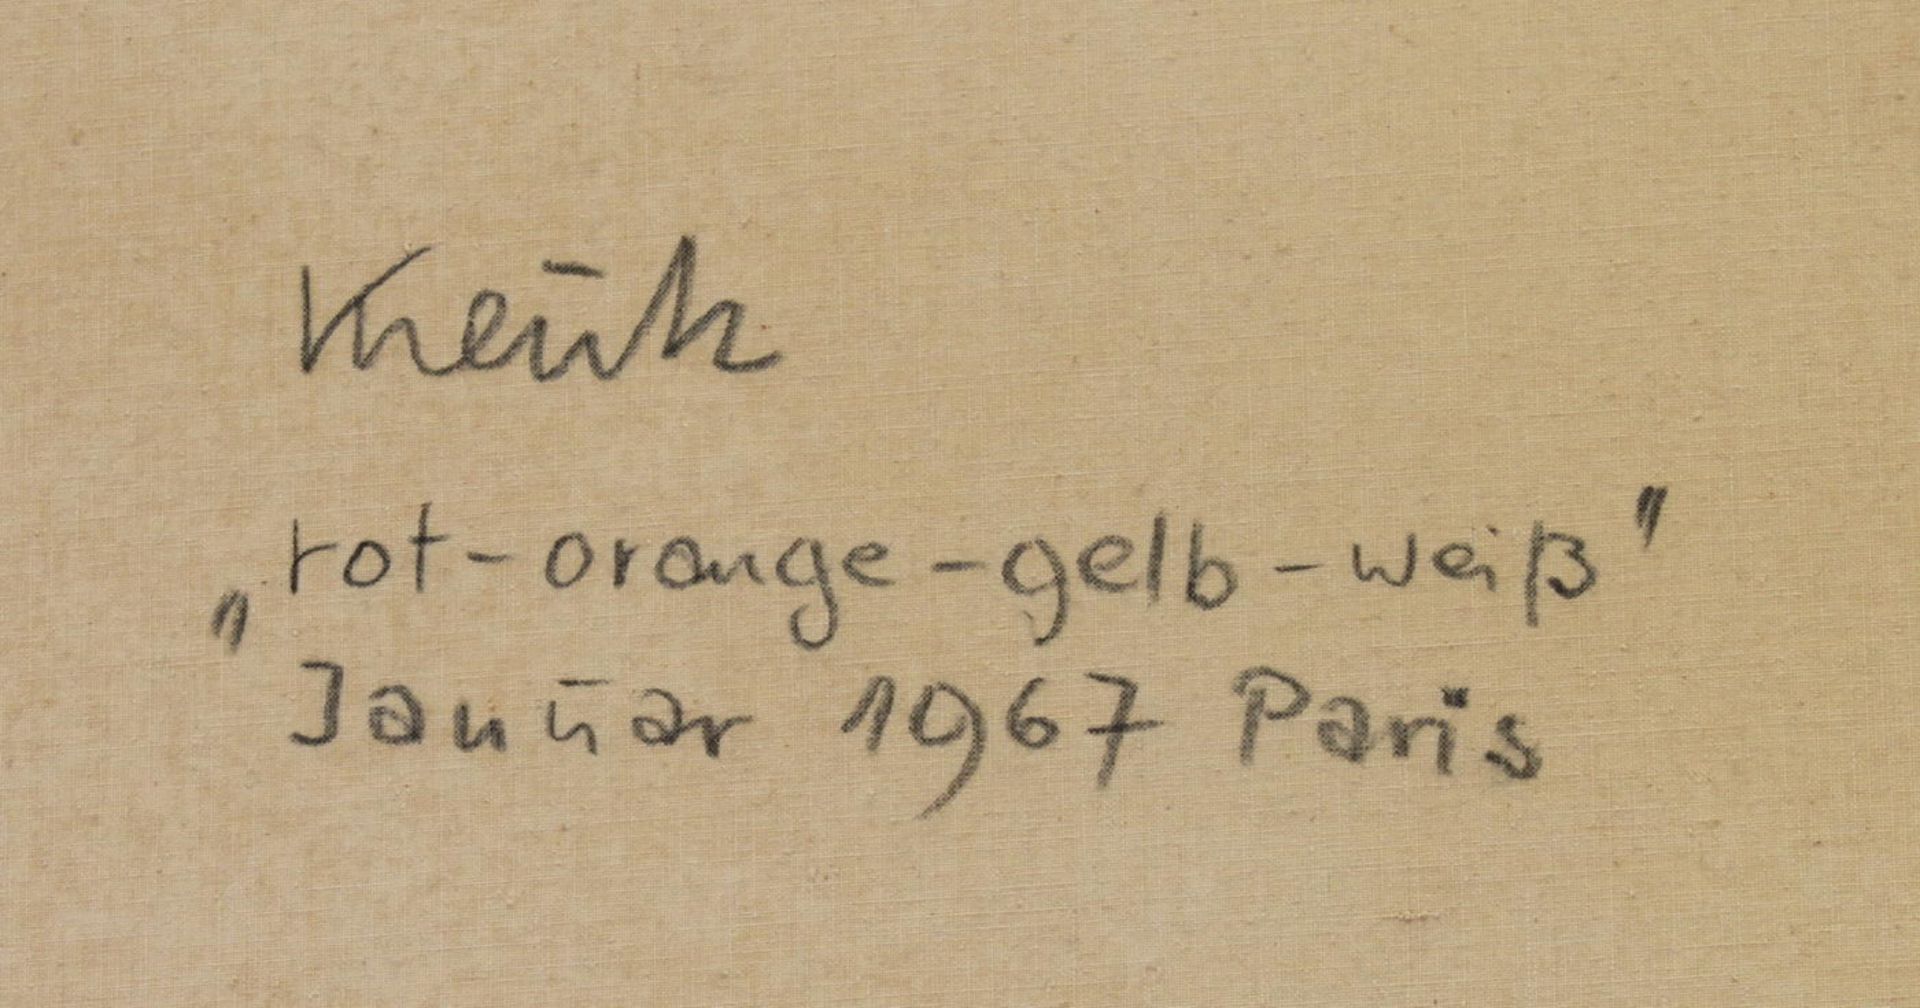 „rot-orange-gelb-weiß"
Januar 1967 Paris